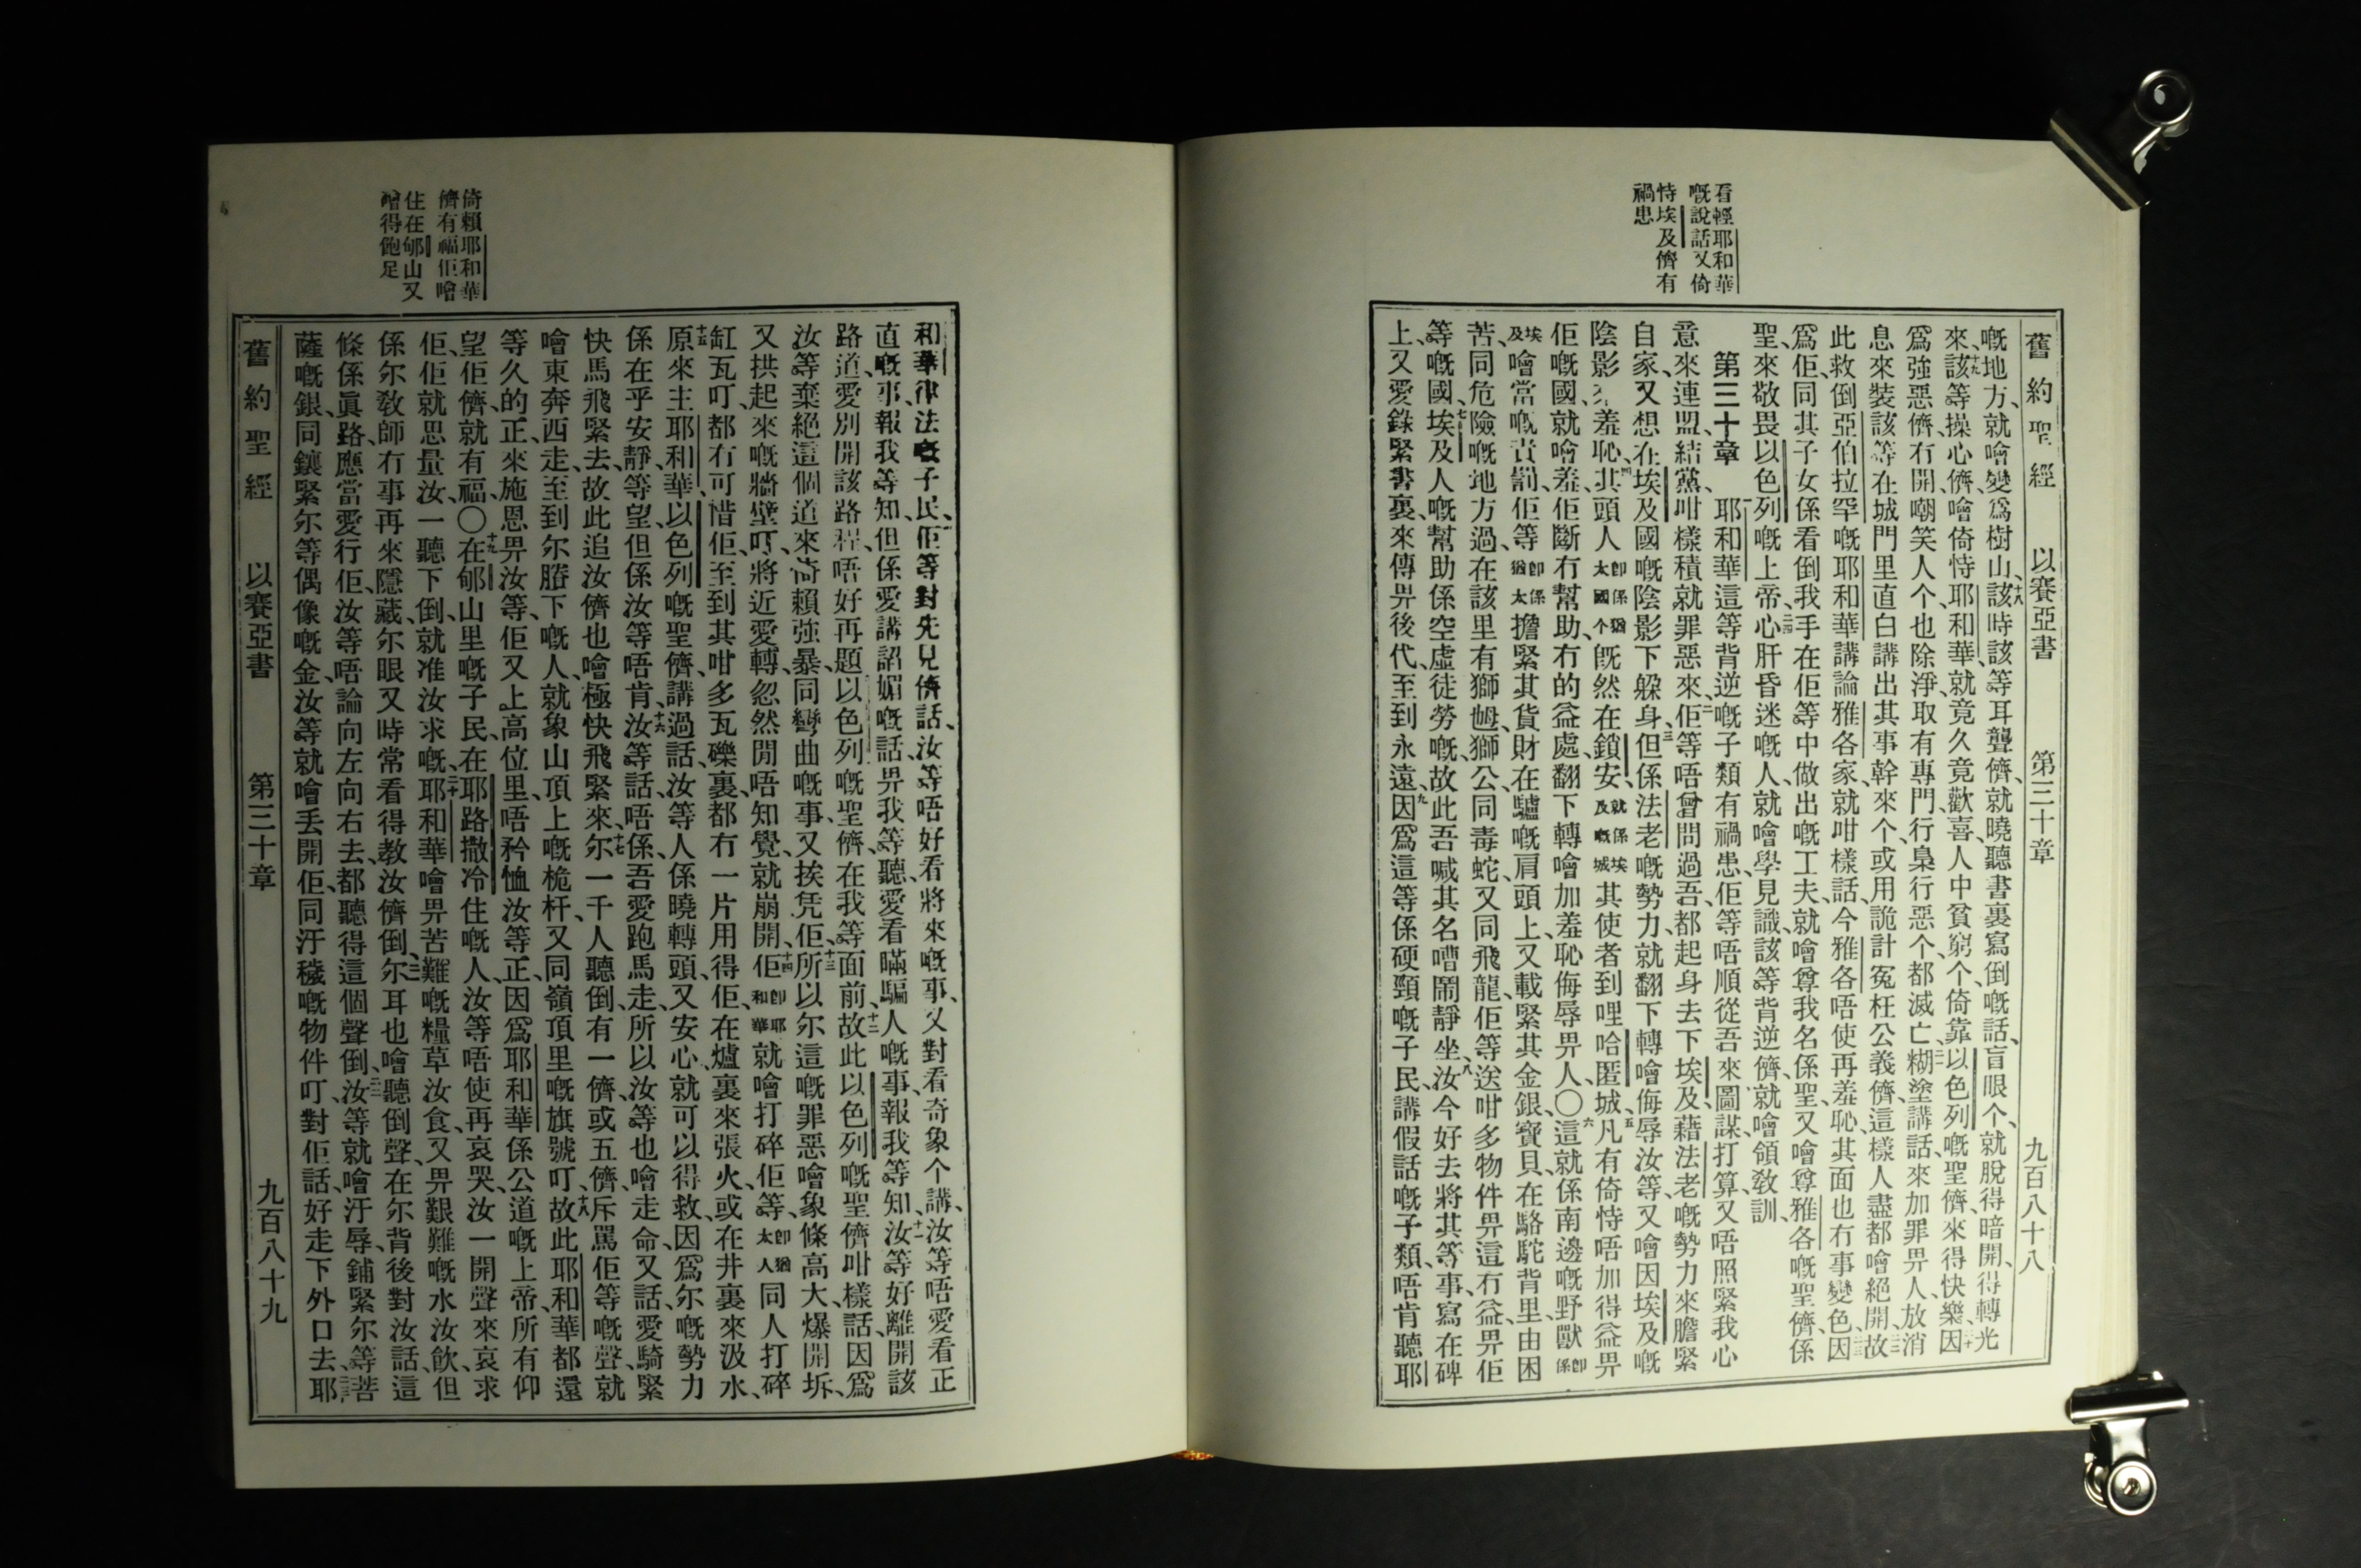 看輕耶和華
嘅說話又倚
恃埃及儕有
禍患
舊約聖經 以賽亞書 第三十章 九百八十八
嘅地方、就噲變爲樹山、十八該時該等耳聾儕、就曉聽書裏寫倒嘅話、盲眼个、就脫得暗開、得轉光
來、十九該等操心儕、噲倚恃耶和華、就竟久竟歡喜、人中貧窮个、倚靠以色列嘅聖儕、來得快樂、二十因
爲強惡儕冇開、嘲笑人个也除淨、取有專門行梟行惡个、都滅亡、二一糊塗講話、來加罪畀人、放消
息來裝該等在城門里直白講出其事幹來个、或用詭計冤枉公義儕、這樣人盡都噲絕開、二二故
此救倒亞伯拉罕嘅耶和華講論雅各家、就咁樣話、今雅各唔使再羞恥、其面也冇事變色、二三因
爲佢同其子女係看倒我手在佢等中做出嘅工夫、就噲尊我名係聖、又噲尊雅各嘅聖儕、係
聖、來敬畏以色列嘅上帝、二四心肝昏迷嘅人、就噲學見識、該等背逆儕、就噲領敎訓、
第三十章 耶和華這等背逆嘅子類有禍患、佢等唔順從吾來圖謀、打算又唔照緊我心
意來連盟、結黨、咁樣積就罪惡來、二佢等唔曾問過吾、都起身去下埃及、藉法老嘅勢力來膽緊
自家、又想在埃及國嘅陰影下躲身、三但係法老嘅勢力、就翻下轉噲侮辱汝等、又噲因埃及嘅
陰影來羞恥、四其頭人卽係猶太國个旣然在鎖安、就係埃及嘅城其使者到哩哈匿城、五凡有倚恃唔加得益畀
佢嘅國、就噲羞、佢斷冇幫助、冇的益處、翻下轉噲加羞恥侮辱畀人、〇六這就係南邊嘅野獸卽係
埃及噲當嘅責罰、佢等卽係猶太擔緊其貨財在驢嘅肩頭上、又載緊其金銀、寶貝、在駱駝背里、由困
苦同危險嘅地方過、在該里有獅乸、獅公、同毒蛇、又同飛龍、佢等送咁多物件畀這冇益、畀佢
等嘅國、七埃及人嘅幫助係空虛徒勞嘅、故此吾喊其名嘈鬧靜坐、八汝今好去將其等事、寫在碑
上、又愛錄緊書裏、來傳畀後代、至到永遠、九因爲這等係硬頸嘅子民、講假話嘅子類、唔肯聽耶
倚賴耶和華
儕有福佢噲
住在郇山又
噲得飽足
和華律法嘅子民、十佢等對先見儕話、汝等唔好看將來嘅事、又對看奇象个講、汝等唔愛看正
直嘅事、報我等知、但係愛講諂媚嘅話、畀我等聽、愛看瞞騙人嘅事、報我等知、十一汝等好離開該
路道、愛別開該路程、唔好再題以色列嘅聖儕、在我等面前、十二故此以色列嘅聖儕咁樣話、因爲
汝等棄絕這個道來、倚賴強暴、同彎曲嘅事、又挨凭佢、十三所以尔這嘅罪惡噲象條高大、爆開坼、
又拱起來嘅牆壁叮、將近愛轉、忽然閒唔知覺、就崩開、十四佢卽耶和華就噲打碎佢等、卽猶太人同人打碎
缸瓦叮、都冇可惜佢、至到其咁多瓦礫裏、都冇一片用得佢、在爐裏來張火、或在井裏來汲水、
十五原來主耶和華、以色列嘅聖儕、講過話、汝等人係曉轉頭、又安心、就可以得救、因爲尔嘅勢力
係在乎安靜、等望、但係汝等唔肯、十六汝等話、唔係、吾愛跑馬走、所以汝等也噲走命、又話、愛騎緊
快馬飛緊去、故此追汝儕也噲極快飛緊來、十七尔一千人聽倒有一儕、或五儕、斥駡佢等嘅聲、就
噲東奔西走、至到尔賸下嘅人、就象山頂上嘅桅杆、又同嶺頂里嘅旗號叮、十八故此耶和華都還
等久的正、來施恩畀汝等、佢又上高位里、唔矜恤汝等正、因爲耶和華係公道嘅上帝、所有仰
望佢儕、就有福、〇十九在郇山里嘅子民、在耶路撒冷住嘅人、汝等唔使再哀哭、汝一開聲來哀求
佢、佢就思量汝、一聽下倒、就准汝求嘅、二十耶和華噲畀苦難嘅糧草汝食、又畀艱難嘅水汝飲、但
係尔敎師冇事再來隱藏、尔眼又時常看得敎汝儕倒、二一尔耳也噲聽倒聲、在尔背後對汝話、這
條係眞路、應當愛行佢、汝等唔論向左向右去、都聽得這個聲倒、二二汝等就噲汙辱、鋪緊尔等菩
薩嘅銀、同鑲緊尔等偶像嘅金、汝等就噲丟開佢、同汙穢嘅物件叮、對佢話、好走下外口去、二三耶
舊約聖經 以賽亞書 第三十章 九百八十九